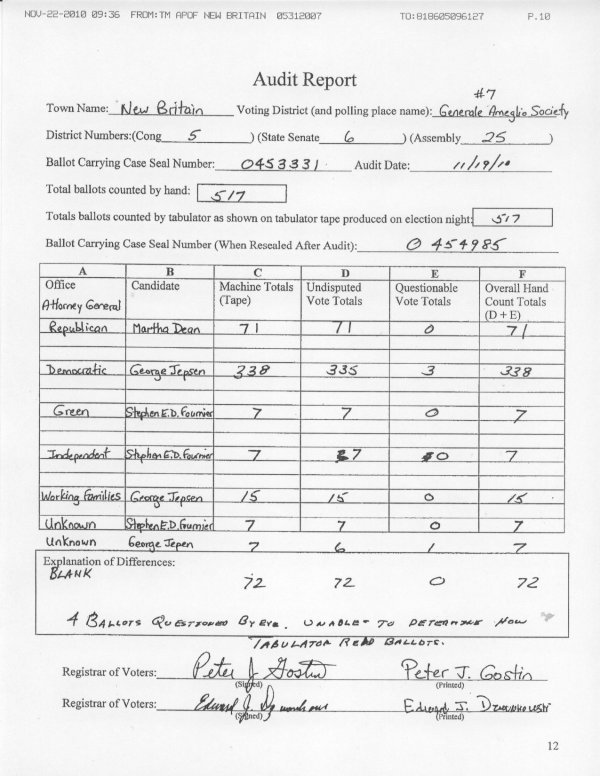 NOV-22-2010 09:36 FROM:TM APOF NEW BRITAIN 05312007 TO:818605096127 P.10
Audit Report
#7
Town Name: New Britain Voting District (and polling place name): Generale Ameglio Society
District Numbers:(Cong 5 ) (State Senate 6 ) (Assembly 25 )
Ballot Carrying Case Seal Number: 0453331 Audit Date: 11/19/10
Total ballots counted by hand: 517
Totals ballots counted by tabulator as shown on tabulator tape produced on election night: 517
Ballot Carrying Case Seal Number (When Resealed After Audit): 0454985
A B C D E F
Office Candidate Machine Totals Undisputed Questionable Overall Hand
Attorney General (Tape) Vote Totals Vote Totals Count Totals
(D + E)
Republican Martha Dean 71 71 0 71
Democratic George Jepsen 338 335 3 338
Green Stephen E.D. Fournier 7 7 0 7
Independent Stephen E.D. Fournier 7 7 0 7
Working Families George Jepsen 15 15 0 15
Unknown Stephen E.D. Fournier 7 7 0 7
Unknown George Jepen 7 6 1 7
Explanation of Differences:
BLANK 72 72 0 72
4 BALLOTS QUESTIONED BY EYE. UNABLE TO DETERMINE HOW
TABULATOR READ BALLOTS.
Registrar of Voters: Peter J Gostin Peter J. Gostin
(Signed) (Printed)
Registrar of Voters: Edward J. Edward J.
(Signed) (Printed)
12